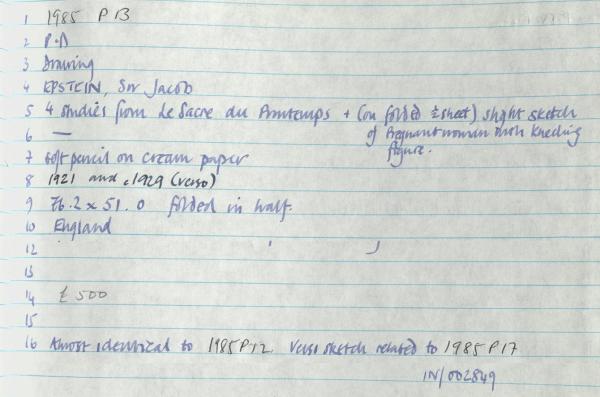 1 1985 P 13
2 P.D
3 Drawing
4 EPSTEIN, Sir Jacob
5 4 studies from Le Sacre du Printemps + (on folded ½ sheet) slight sketch
6 — of Pregnant woman with kneeling
figure.
7 soft pencil on cream paper
8 1921 and c1929 (verso)
9 76.2 x 51.0 folded in half.
10 England
12
13
14 £500
15
16 Almost identical to 1985P12. Verso sketch related to 1985P17
IN/002849